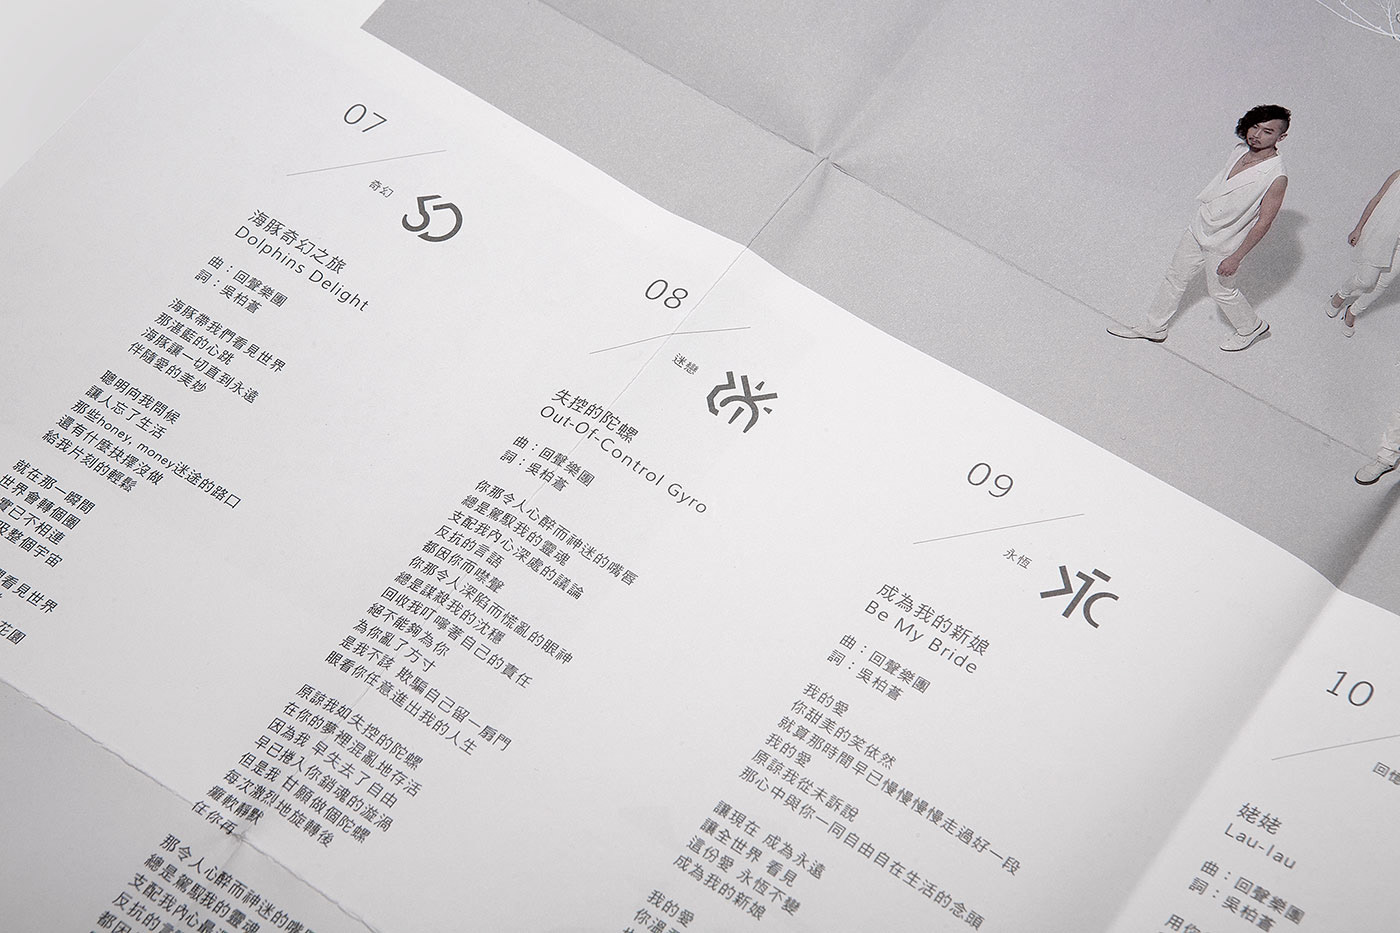 07
奇幻
海豚奇幻之旅
Dolphins Delight
曲：回聲樂團
詞：吳柏蒼
海豚帶我們看見世界
那湛藍的心跳
海豚讓一切直到永遠
伴隨愛的美妙
聰明向我問候
讓人忘了生活
那些honey, money迷途的路口
還有什麼抉擇沒做
給我片刻的輕鬆
就在那一瞬間
世界會轉個圈
實已不相連
整個宇宙
看見世界
花園
08
迷戀
失控的陀螺
Out-Of-Control Gyro
曲：回聲樂團
詞：吳柏蒼
你那令人心醉而神迷的嘴唇
總是駕馭我的靈魂
支配我內心深處的議論
反抗的言語
都因你而噤聲
你那令人深陷而慌亂的眼神
總是謀殺我的沈穩
回收我叮嚀著自己的責任
絕不能夠為你
為你亂了方寸
是我不該 欺騙自己留一扇門
眼看你任意進出我的人生
原諒我如失控的陀螺
在你的夢裡混亂地存活
因為我 早失去了自由
早已捲入你銷魂的漩渦
但是我 甘願做個陀螺
每次激烈地旋轉後
癱軟靜默
任你再
那令人心醉而神迷的嘴
總是駕馭我的靈魂
支配我內心最
反抗的言
都因
09
永恆
成為我的新娘
Be My Bride
曲：回聲樂團
詞：吳柏蒼
我的愛
你甜美的笑依然
就算那時間早已慢慢慢慢走過好一段
我的愛
原諒我從未訴說
那心中與你一同自由自在生活的念頭
讓現在 成為永遠
讓全世界 看見
這份愛 永恆不變
成為我的新娘
我的愛
你溫
10
姥姥
Lau-lau
曲：回聲樂團
詞：吳柏蒼
用你